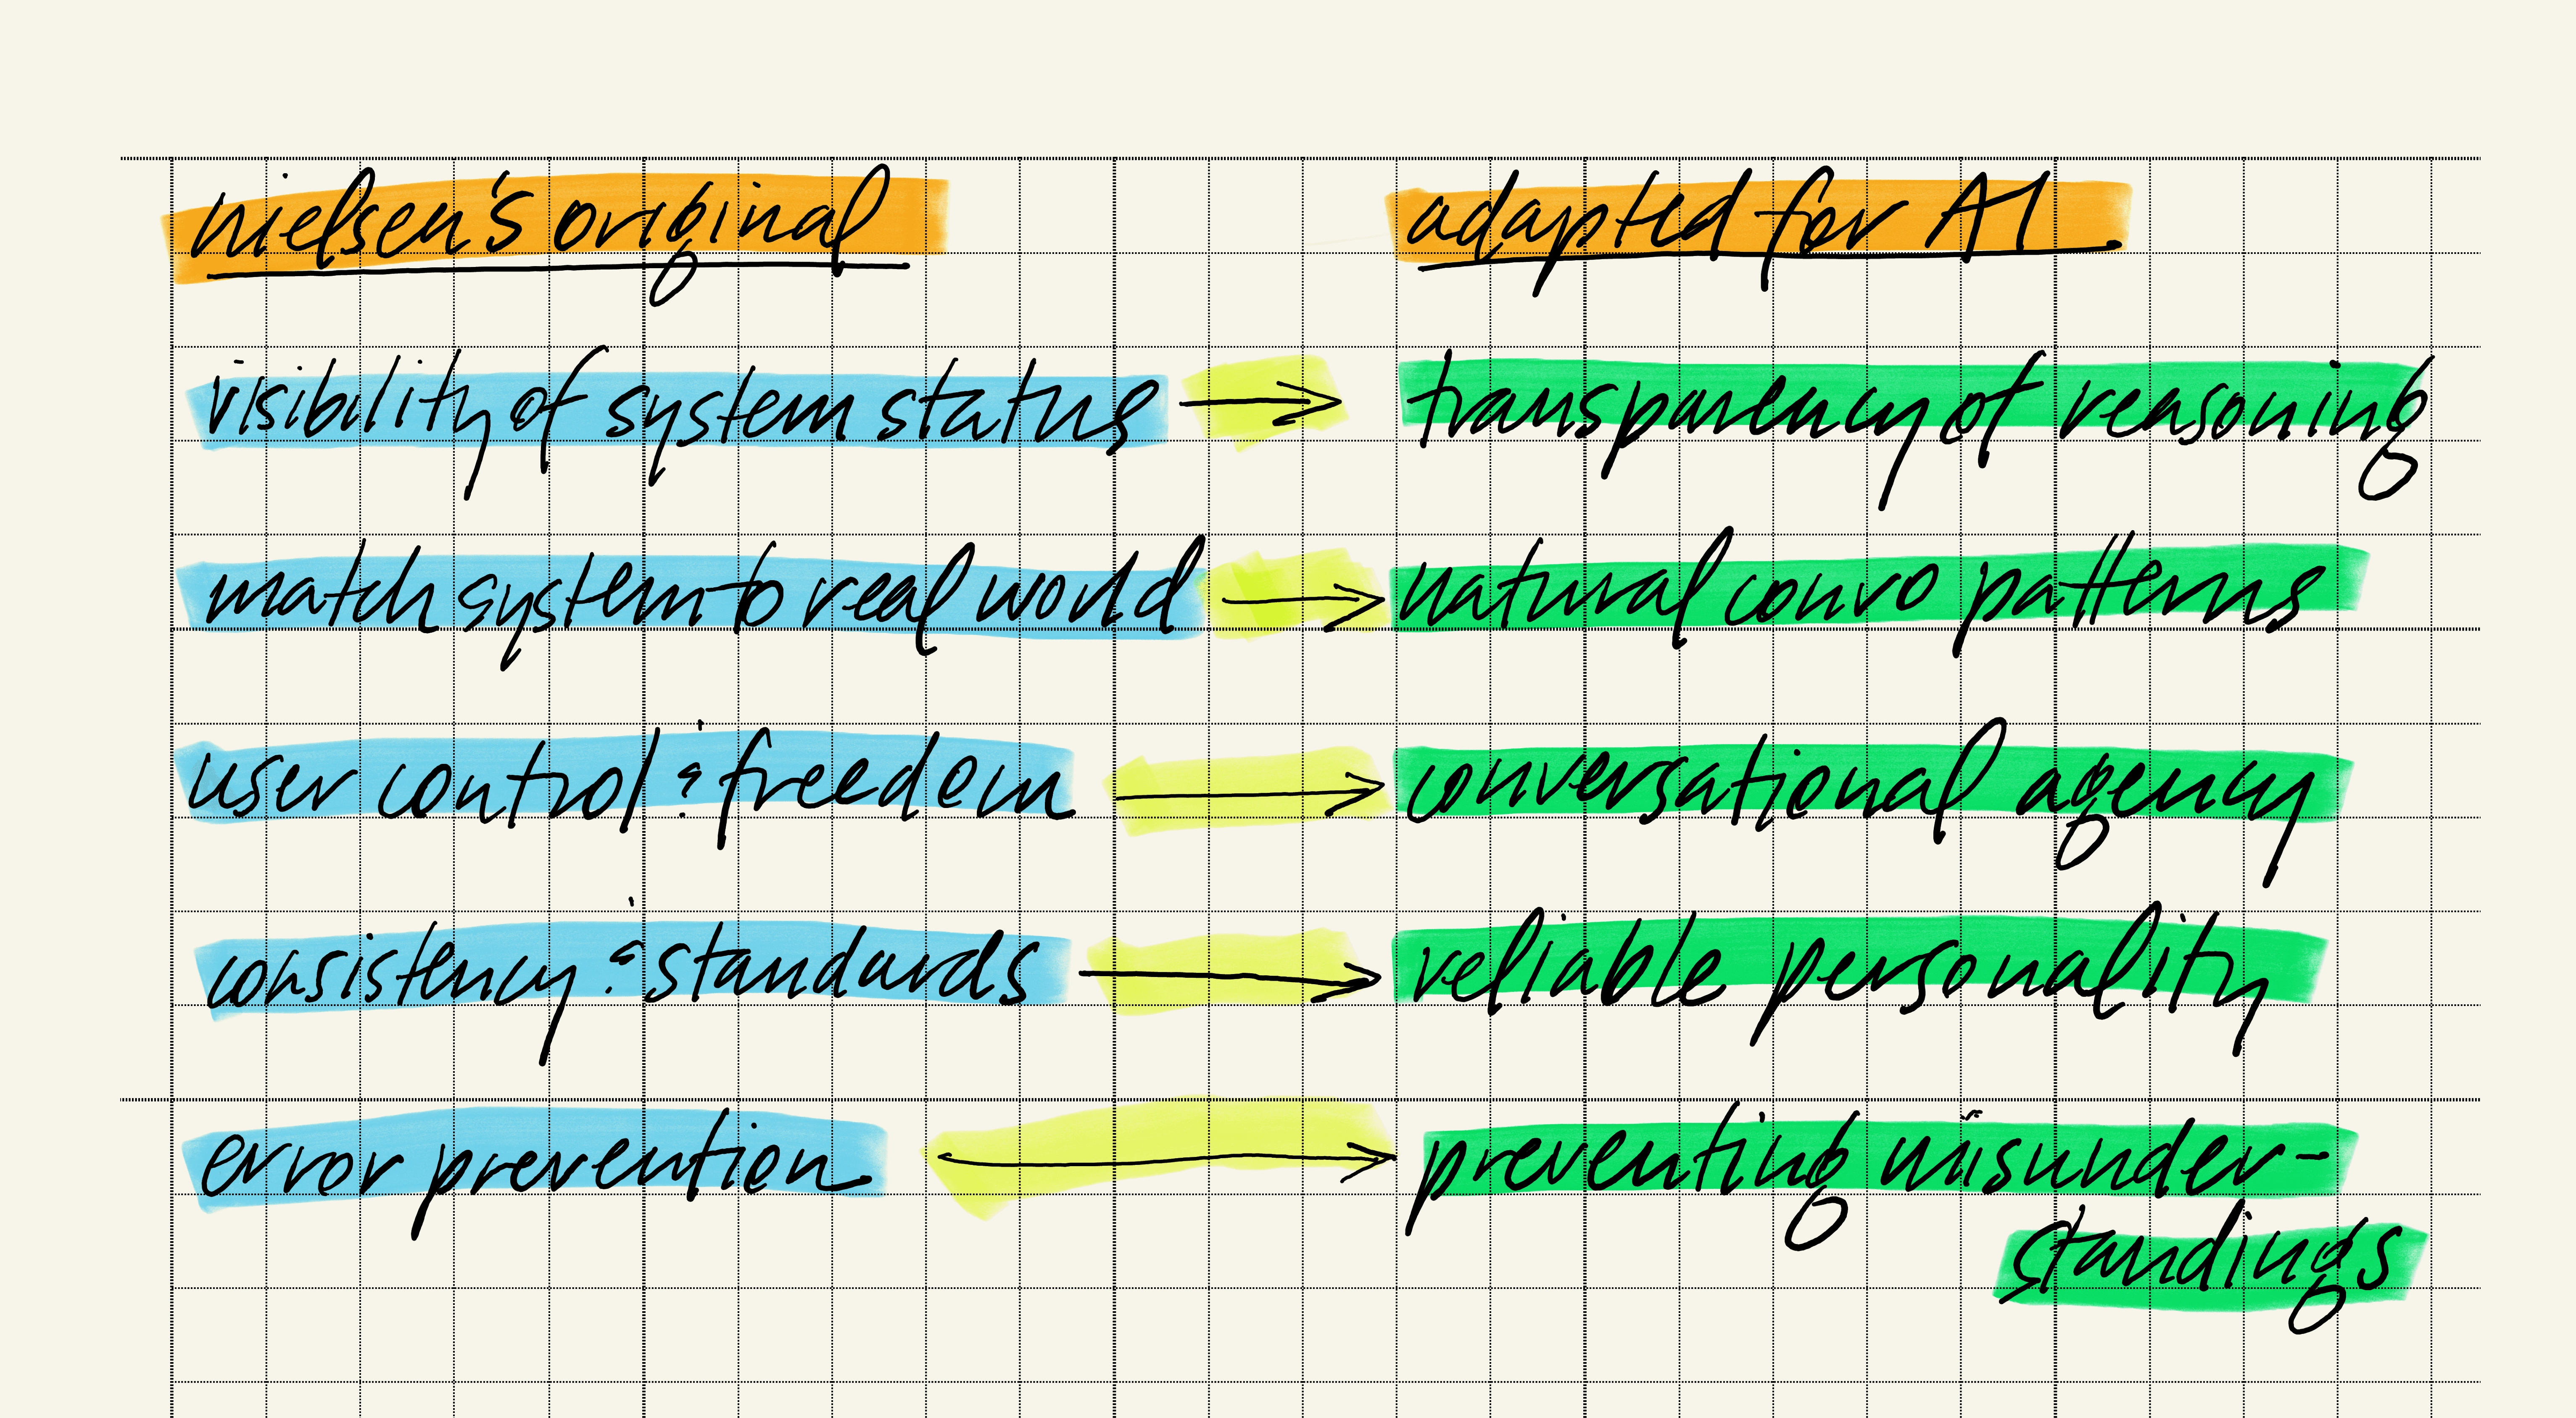 nielsen's original
adapted for AI
visibility of system status → transparency of reasoning
match system to real world → natural convo patterns
user control & freedom → conversational agency
consistency & standards → reliable personality
error prevention → preventing misunder-
standings